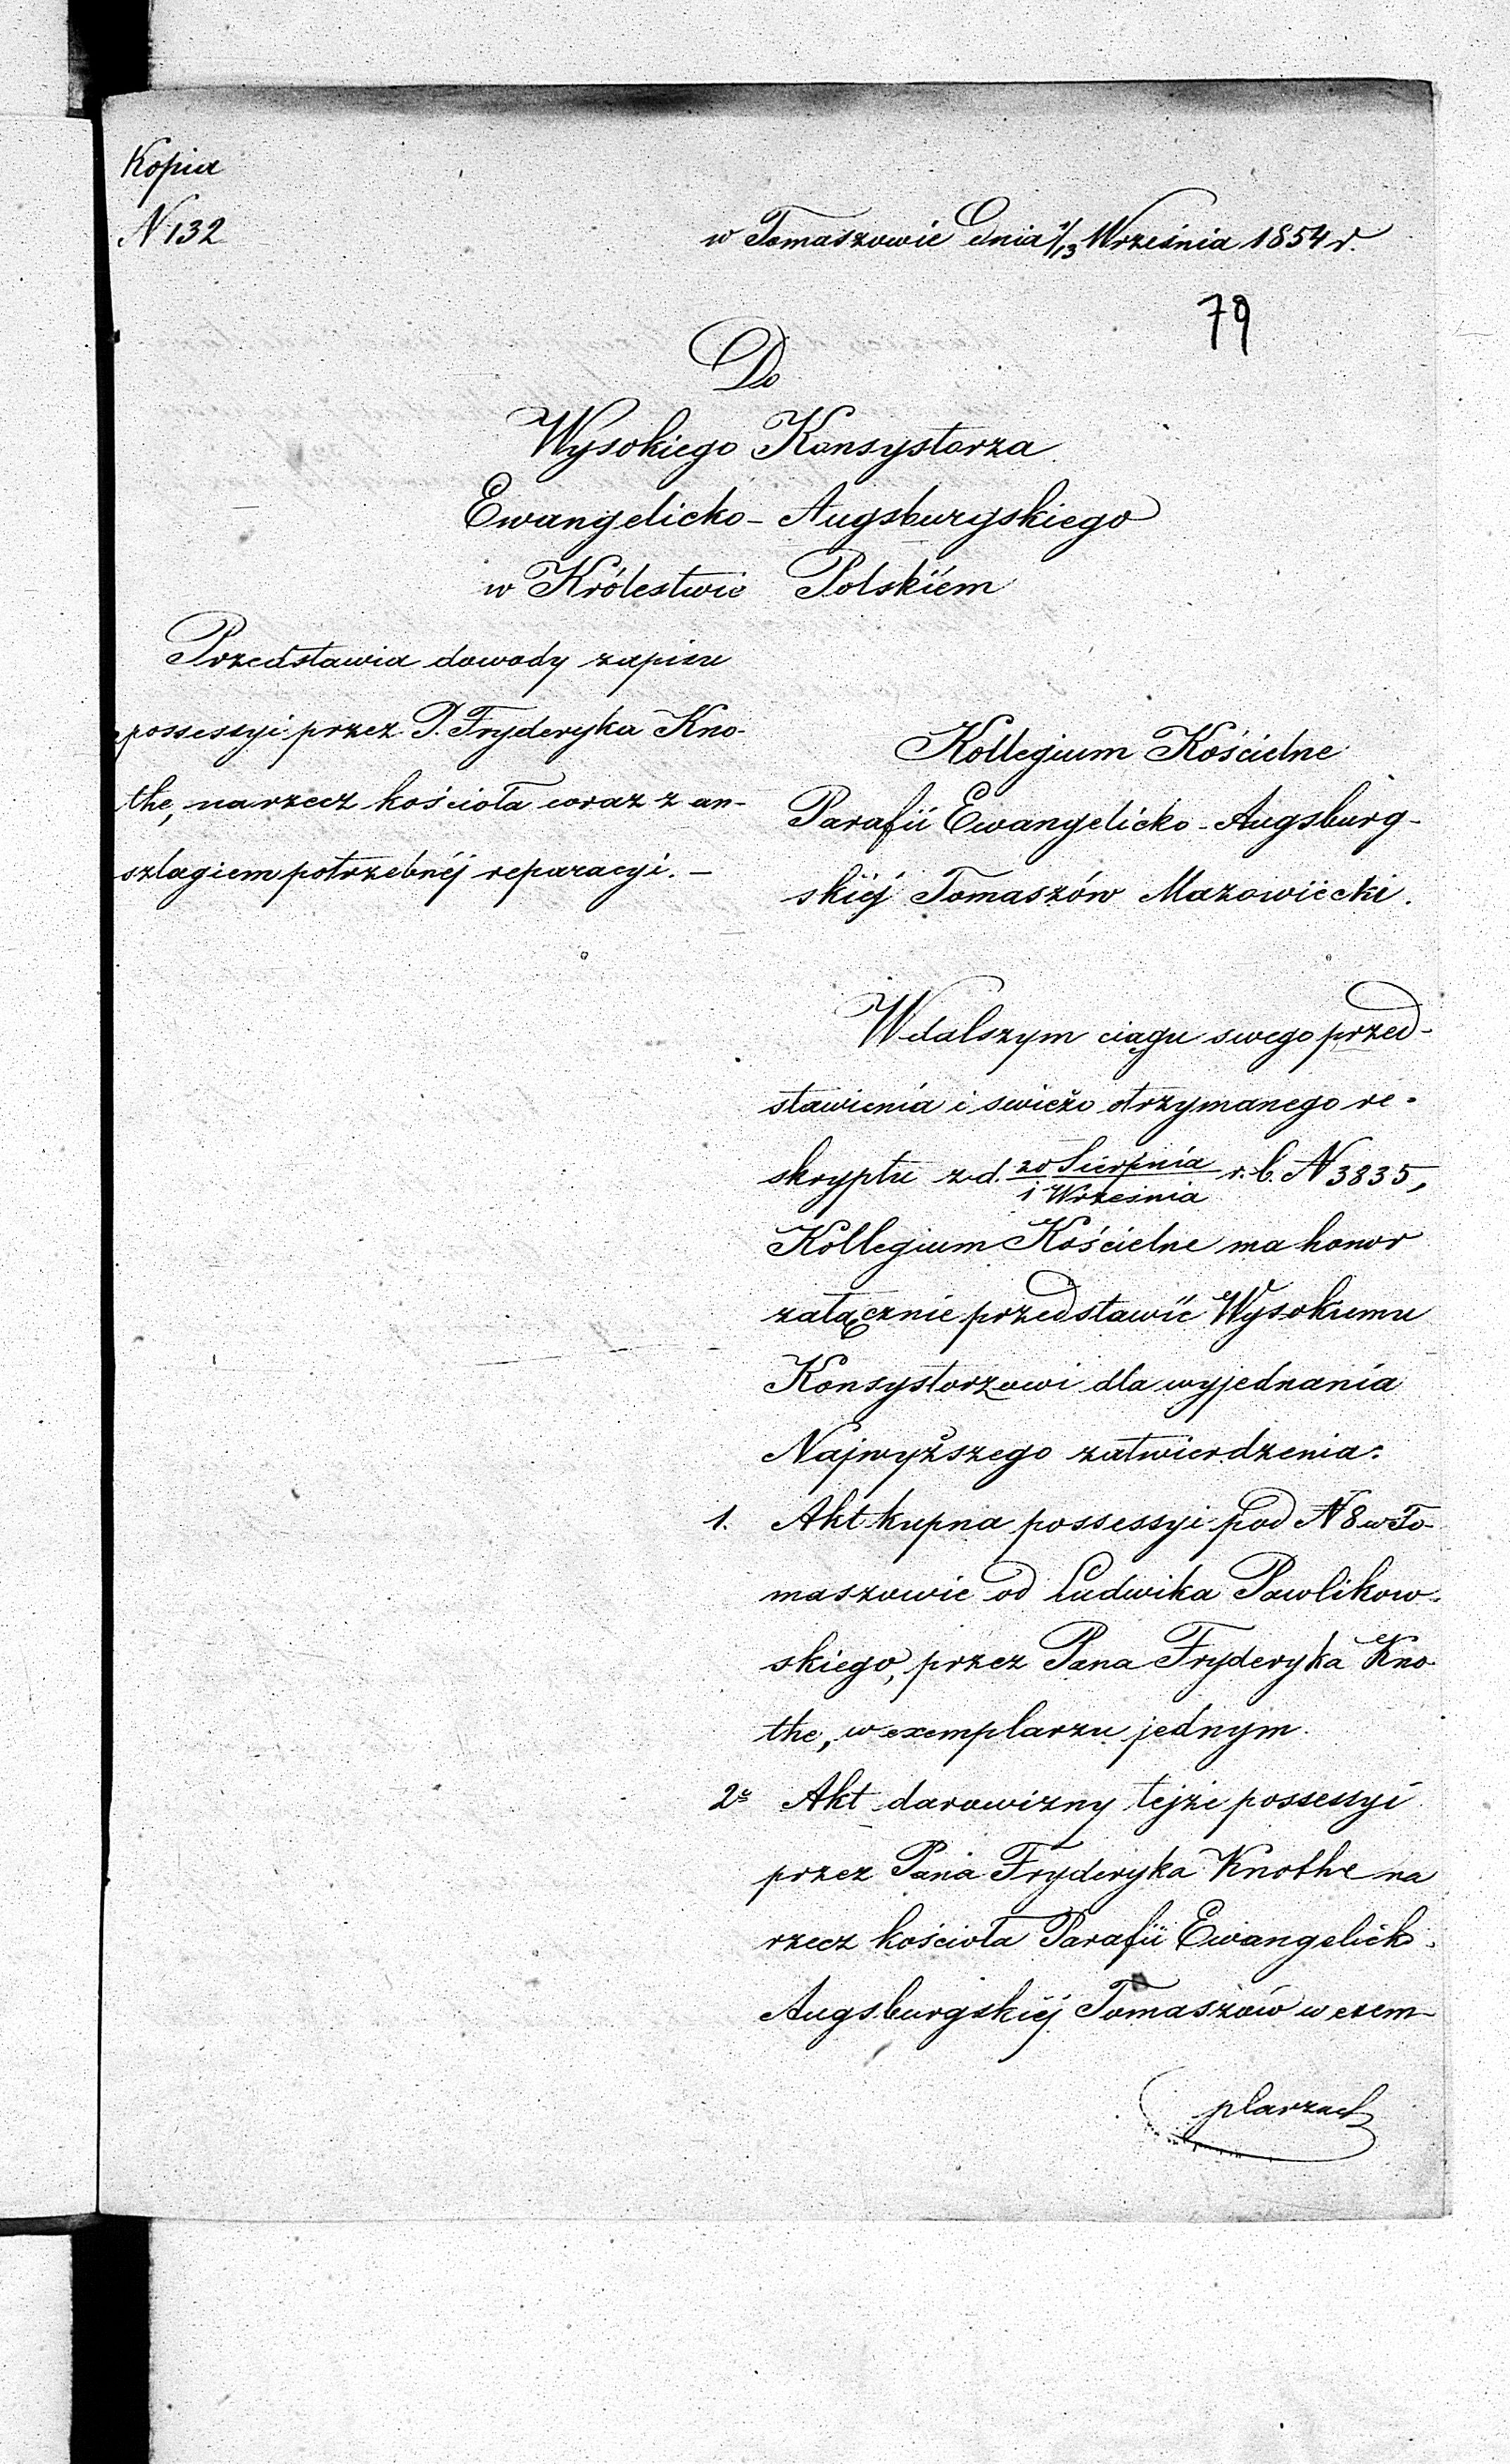 Kopia
N 132
w Tomaszowie Dnia 1/13 Września 1854 r.
79
Do
Wysokiego Konsystorza
Ewangelicko-Augsburgskiego
w Królestwie Polskiém
Przedstawia dowody zapisu
possessyi przez P. Fryderyka Kno-
the, na rzecz kościoła wraz z an-
szlagiem potrzebnéj reparacyi. –
Kollegium Kościelne
Parafii Ewangelicko-Augsburg-
skiéj Tomaszów Mazowiecki.
W dalszym ciągu swego przed-
stawienia i swieżo otrzymanego re-
skryptu z d. 20 Sierpnia / 1 Września r. b. N 3835,
Kollegium Kościelne ma honor
załącznie przedstawić Wysokiemu
Konsystorzowi dla wyjednania
Najwyższego zatwierdzenia:
1. Akt kupna possessyi pod N 8 w To-
maszowie od Ludwika Pawlikow-
skiego, przez Pana Fryderyka Kno-
the, w exemplarzu jednym.
2. Akt darowizny tejże possessyi
przez Pana Fryderyka Knothe na
rzecz kościoła Parafii Ewangelicko-
Augsburgskiéj Tomaszów w exem-
plarzach